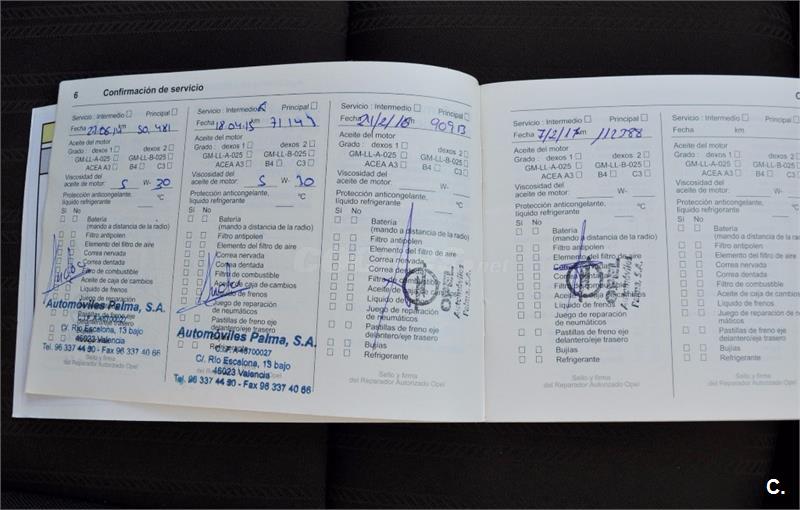 6 Confirmación de servicio
Servicio : Intermedio Principal
Fecha 50,481
Aceite del motor
Grado : dexos 1 dexos 2
GM-LL-A-025 GM-LL-B-025
ACEA A3 B4 C3
Viscosidad del
aceite de motor: 5 W- 30
Protección anticongelante,
líquido refrigerante °C
Si No
Batería
(mando a distancia de la radio)
Filtro antipolen
Elemento del filtro de aire
Correa nervada
Correa dentada
Filtro de combustible
Aceite de caja de cambios
Líquido de frenos
Juego de reparación
Automóviles Palma, S.A.
C/. Río Escalona, 13 bajo
46023 Valencia
Tel. 96 337 44 90 - Fax 96 337 40 66
Sello y firma
del Reparador Autorizado Opel
Servicio : Intermedio Principal
Fecha 18.04.15 km
Aceite del motor
Grado : dexos 1 dexos 2
GM-LL-A-025 GM-LL-B-025
ACEA A3 B4 C3
Viscosidad del
aceite de motor: 5 W- 30
Protección anticongelante,
líquido refrigerante °C
Si No
Batería
(mando a distancia de la radio)
Filtro antipolen
Elemento del filtro de aire
Correa nervada
Correa dentada
Filtro de combustible
Aceite de caja de cambios
Líquido de frenos
Juego de reparación
de neumáticos
Automóviles Palma, S.A.
C/. Río Escalona, 13 bajo
46023 Valencia
Tel. 96 337 44 90 - Fax 96 337 40 66
Servicio : Intermedio Principal
Fecha 21/2/16 km
Aceite del motor
Grado : dexos 1 dexos 2
GM-LL-A-025 GM-LL-B-025
ACEA A3 B4 C3
Viscosidad del
aceite de motor: W-
Protección anticongelante,
líquido refrigerante °C
Si No
Batería
(mando a distancia de la radio)
Filtro antipolen
Elemento del filtro de aire
Correa nervada
Correa dentada
Filtro de combustible
Aceite de caja de cambios
Líquido de frenos
Juego de reparación
de neumáticos
Pastillas de freno eje
delantero/eje trasero
Bujías
Refrigerante
OPEL
Automóviles
Palma, S.A.
Sello y firma
del Reparador Autorizado Opel
Servicio : Intermedio Principal
Fecha 7/2/17 km 112788
Aceite del motor
Grado : dexos 1 dexos 2
GM-LL-A-025 GM-LL-B-025
ACEA A3 B4 C3
Viscosidad del
aceite de motor: W-
Protección anticongelante,
líquido refrigerante °C
Si No
Batería
(mando a distancia de la radio)
Filtro antipolen
Elemento del filtro de aire
Correa nervada
Correa dentada
Filtro de combustible
Aceite de caja de cambios
Líquido de frenos
Juego de reparación
de neumáticos
Pastillas de freno eje
delantero/eje trasero
Bujías
Refrigerante
OPEL
Automóviles
Palma, S.A.
Sello y firma
del Reparador Autorizado Opel
Servicio : Intermedio
Fecha km
Aceite del motor
Grado : dexos 1
GM-LL-A-025
ACEA A3
Viscosidad del
aceite de motor:
Protección anticongelante,
líquido refrigerante
Si No
Batería
(mando a distancia
Filtro antipolen
Elemento del filtro
Correa nervada
Correa dentada
Filtro de combustible
Aceite de caja
Líquido de frenos
Juego de reparación
de neumáticos
Pastillas de freno
delantero/eje
Bujías
Refrigerante
Sello y firma
C.